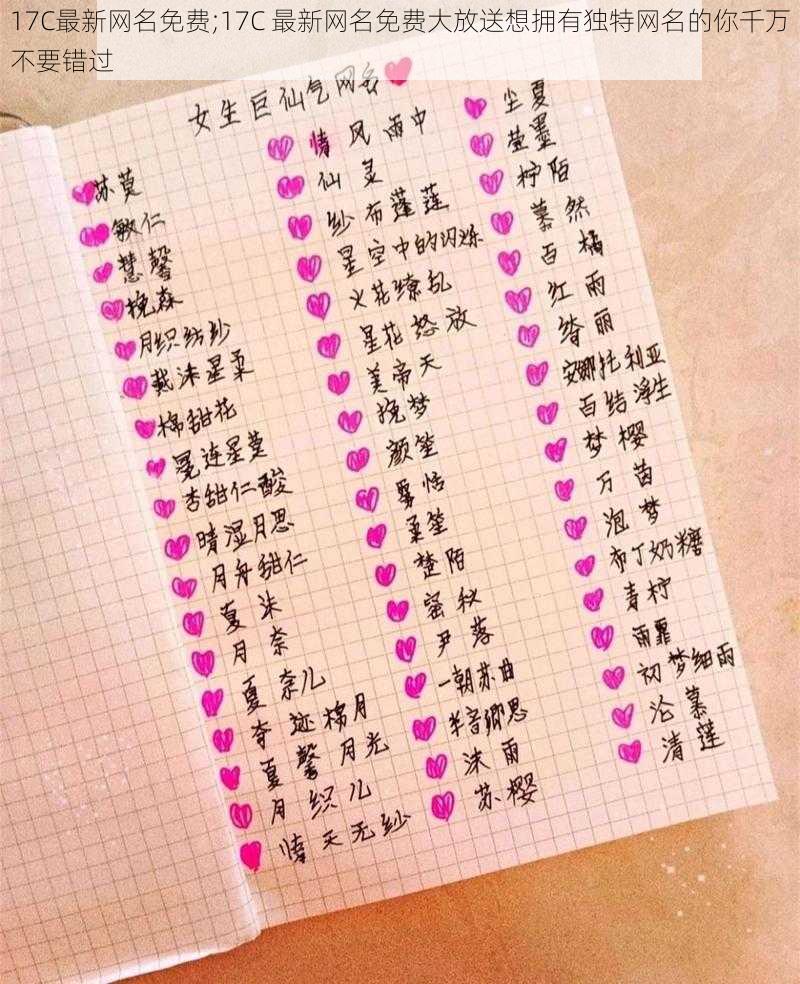 17C最新网名免费;17C 最新网名免费大放送想拥有独特网名的你千万
不要错过
女生巨仙气网名
苏莫
敏仁
慧馨
挽森
月织纺纱
戴沫星柔
棉甜花
冕连星蔓
杏甜仁酸
晴湿月思
月舟甜仁
夏沫
月奈
夏奈儿
夸迹棉月
夏馨月光
月织儿
情天无纱
情风雨中
仙灵
纱布蓬莲
星空中的闪烁
火花缭乱
星花怒放
美帝天
挽梦
颜笙
雾恬
柔笙
楚陌
蜜秘
尹落
一朝苏曲
半音卿思
沫雨
苏樱
尘夏
萤墨
柠陌
慕然
百橘
红雨
绺丽
安娜托利亚
百结浮生
梦樱
万茵
泡梦
布丁奶糖
青柠
雨霏
初梦细雨
沦慕
清莲